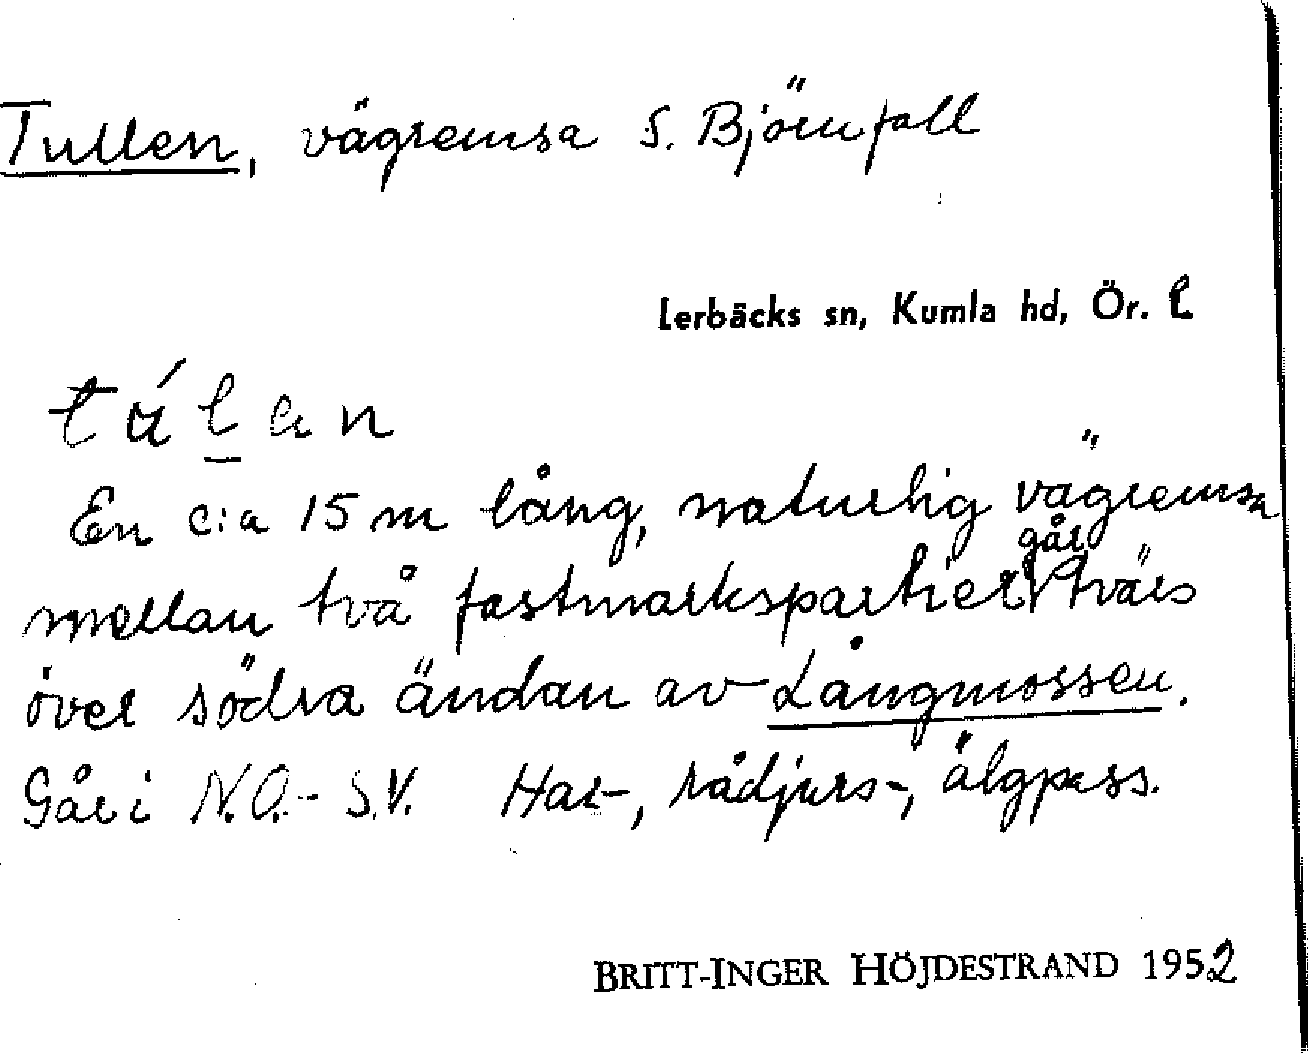 Tullen, vägremsa S. Björnfall
Lerbäcks sn, Kumla hd, Ör. l
En c:a 15 m lång, naturlig vägremsa
går
mellan två fastmarkspartier tvärs
över södra ändan av Långmossen.
Går i N.O.- S.V. Har-, rådjurs-, älgpass.
BRITT-INGER HÖJDESTRAND 1952